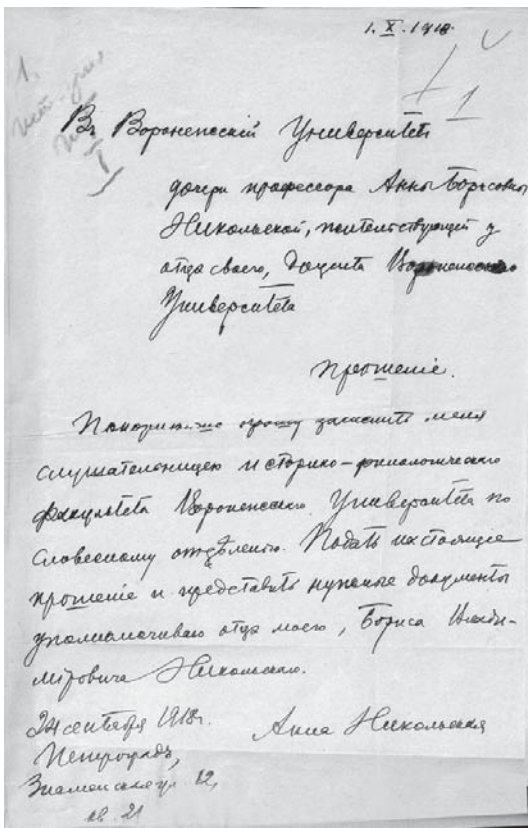 1. X. 1918.
1.
1
Въ Воронежскій Университетъ
дочери профессора Анны Борисовны
Никольской, жительствующей у
отца своего, доцента Воронежского
Университета
прошеніе.
Покорнейше прошу зачислить меня
слушательницею историко-филологическаго
факультета Воронежскаго Университета по
словесному отдѣленію. Подать настоящее
прошеніе и представить нужные документы
уполномочиваю отца моего, Бориса Влади-
міровича Никольскаго.
24 сентября 1918г.
Анна Никольская
Петроградъ,
Знаменская ул. 12,
кв. 21